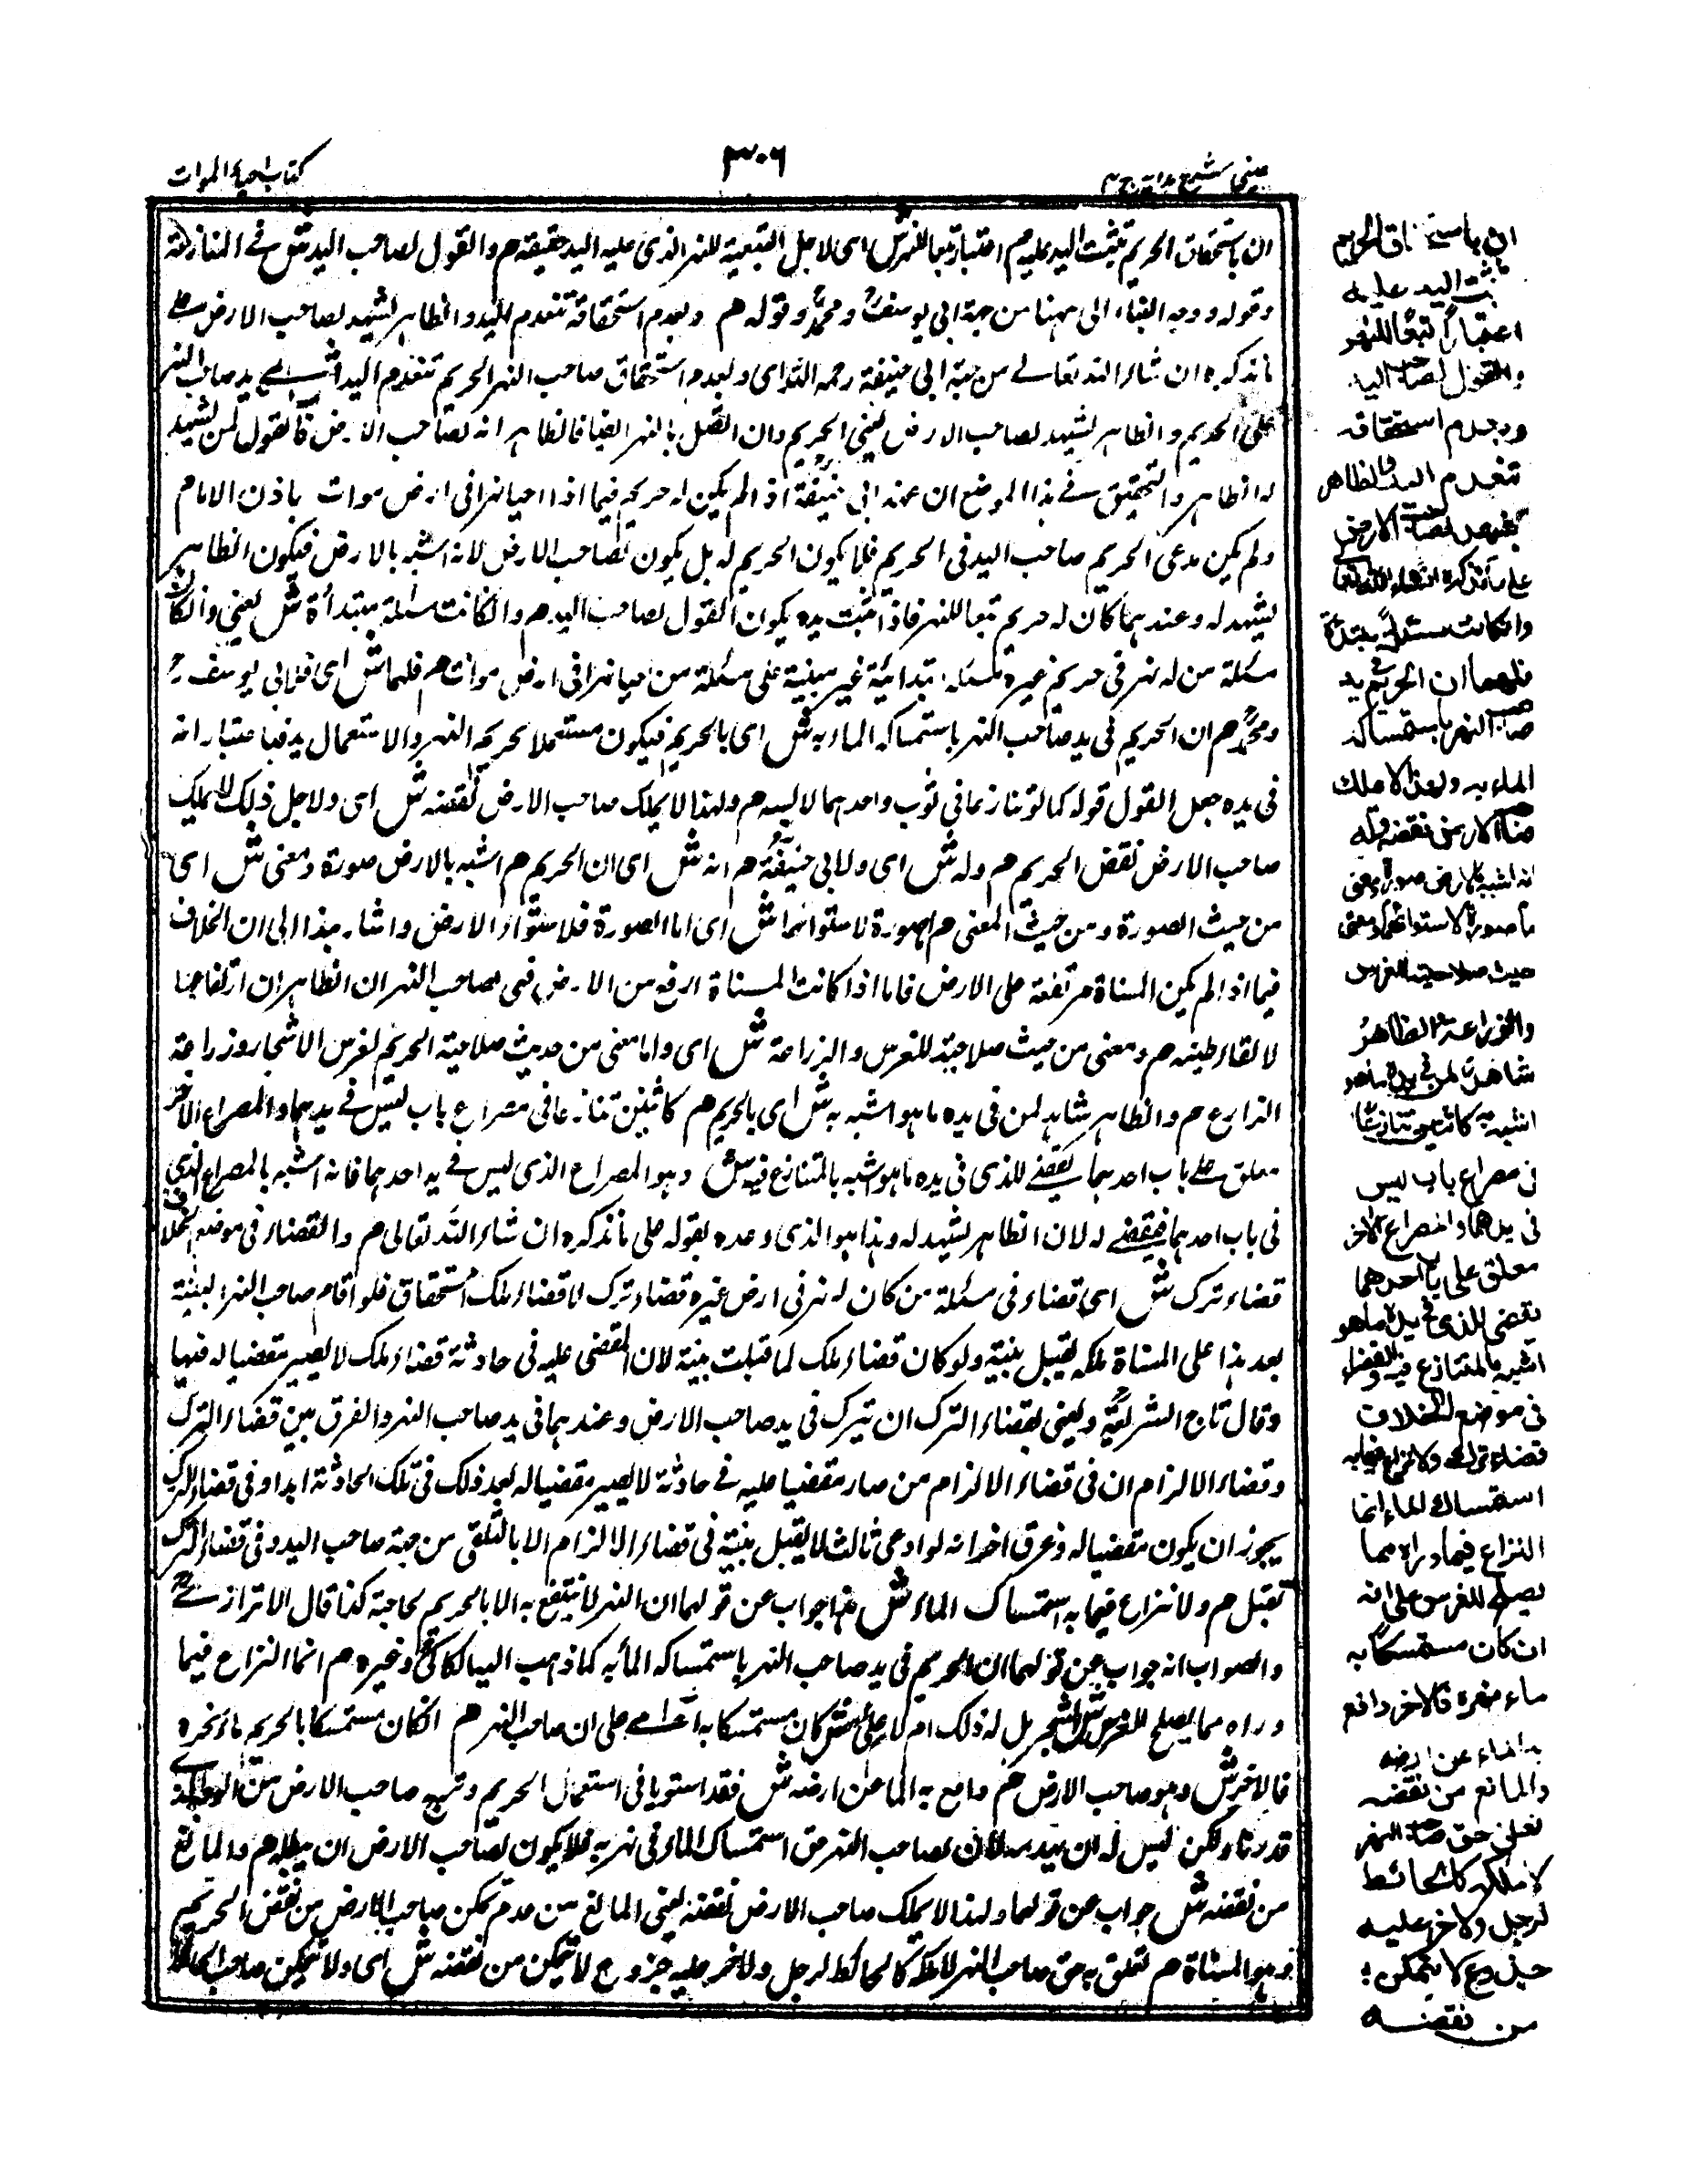 كتاب احياء الموات
٣٠٦
عينى شرح هدايه ج ٤
ان باستحقاق الحريم تثبت اليد عليه م اعتبارا تبعا للنهر ش اى لاجل التبعية للنهر الذى عليه اليد حقيقة م والقول لصاحب اليد ش فى المنازعة
وقوله ووجه البناء الى ههنا من جهة ابى يوسف ومحمد وقوله م وبعدم استحقاقه تنعدم اليد والظاهر يشهد لصاحب الارض على
ما نذكره ان شاء الله تعالى من جهة ابى حنيفة رحمه الله اى وبعدم استحقاق صاحب النهر الحريم تنعدم اليد اى يد صاحب النهر
على الحريم والظاهر يشهد لصاحب الارض يعنى الحريم وان اتصل بالنهر ايضا فالظاهر انه لصاحب الارض فالقول لمن يشهد
له الظاهر والتحقيق فى هذا الموضع ان عند ابى حنيفة اذ الم يكن له حريم فيما اذا احيا نهرا فى ارض موات باذن الامام
ولم يكن مدعى الحريم صاحب اليد فى الحريم فلا يكون الحريم له بل يكون لصاحب الارض لانه اشبه بالارض فيكون الظاهر
يشهد له وعندهما كان له حريم تبعا للنهر فاذا اثبت يده يكون القول لصاحب اليد م وان كانت مسئلة مبتدأة ش يعنى وان كان
مسئلة من له نهر فى حريم غيره مسئلة ابتدائية غير مبنية على مسئلة من احيا نهرا فى ارض موات م فلهما ش اى فلابى يوسف
ومحمد م ان الحريم فى يد صاحب النهر باستمساكه الماء به ش اى بالحريم فيكون مستعملا بحريم النهر والاستعمال يد فباعتبار انه
فى يده جعل القول قوله كما لو تنازعا فى ثوب واحدهما لابسه م ولهذا لا يملك صاحب الارض نقضه ش اى ولاجل ذلك لا يملك
صاحب الارض نقض الحريم م وله ش اى ولابى حنيفة م انه ش اى ان الحريم م اشبه بالارض صورة ومعنى ش اى
من حيث الصورة ومن حيث المعنى م اما صورة لاستوائهما ش اى اما الصورة فلاستواء الارض واشار بهذا الى ان الخلاف
فيما اذ الم يكن المسناة مرتفعة على الارض فاما اذا كانت المسناة ارفع من الارض فهى لصاحب النهر ان الظاهر ان ارتفاعها
لالقاء طينه م ومعنى من حيث صلاحيته للغرس والزراعة ش اى واما معنى من حيث صلاحية الحريم لغرس الاشجار وزراعة
الزارع م والظاهر شاهد لمن فى يده ما هو اشبه به ش اى بالحريم م كاثنين تنازعا فى مصراع باب ليس فى يدهما والمصراع الآخر
معلق على باب احدهما يقضى للذى فى يده ما هو اشبه بالمتنازع فيه ش وهو المصراع الذى ليس فى يد احدهما فانه اشبه بالمصراع الذى
فى باب احدهما فيقضى له لان الظاهر يشهد له وهذا هو الذى وعده بقوله على ما نذكره ان شاء الله تعالى م والقضاء فى موضع الخلاف
قضاء ترك ش اى قضاء فى مسئلة من كان له نهر فى ارض غيره قضاء ترك لا قضاء ملك استحقاق فلو اقام صاحب النهر البينة
بعد هذا على المسناة ملكه يقبل بينته ولو كان قضاء ملك لما قبلت بينة لان المقضى عليه فى حادثة قضاء ملك لا يصير مقضيا له فيها
وقال تاج الشريعة ويعنى بقضاء الترك ان يترك فى يد صاحب الارض وعندهما فى يد صاحب النهر والفرق بين قضاء الترك
وقضاء الالزام ان فى قضاء الالزام من صار مقضيا عليه فى حادثة لا يصير مقضيا له بعد ذلك فى تلك الحادثة ابدا وفى قضاء الترك
يجوز ان يكون مقضيا له وفرق اخر انه لو ادعى ثالث لا يقبل بينته فى قضاء الالزام الا بالتلقى من جهة صاحب اليد وفى قضاء الترك
تقبل م ولا نزاع فيما به استمساك الماء ش هذا جواب عن قولهما ان النهر لا ينتفع به الا بالحريم لحاجته كذا قال الاترازى
والصواب انه جواب عن قولهما ان الحريم فى يد صاحب النهر باستمساكه الماء به كما ذهب اليه الكاكى وغيره م انما النزاع فيما
وراءه مما يصلح للغرس ش الشجر بل له ذلك ام لا م على انه ش كان مستمسكا به اى على ان صاحب النهر م ان كان مستمسكا بالحريم ماء نهره
فالاخر ش وهو صاحب الارض م دافع به الماء عن ارضه ش فقد استويا فى استعمال الحريم
قدرناه ولكن ليس له ان يهدمه لان لصاحب النهر حق استمساك الماء فى نهره به فلا يكون لصاحب الارض ان يبطله م والمانع
من نقضه ش جواب عن قولهما ولهذا لا يملك صاحب الارض نقضه يعنى المانع من عدم تمكن صاحب الارض من نقض الحريم
وهو المسناة م تعلق به حق صاحب النهر لا ملكه كالحائط لرجل ولاخر عليه جذوع لا يتمكن من نقضه ش اى ولا يتمكن صاحب الحائط
ان باستحقاق الحريم
تثبت اليد عليه
اعتبارا تبعا للنهر
والقول لصاحب اليد
وبعدم استحقاقه
تنعدم اليد والظاهر
يشهد لصاحب الارض
على ما نذكره انشاء الله تعالى
وان كانت مسئلة مبتدأة
فلهما ان الحريم فى يد
صاحب النهر باستمساكه
الماء به ولهذا لا يملك
صاحب الارض نقضه وله
انه اشبه بالارض صورة ومعنى
اما صورة لاستوائهما ومعنى
حيث صلاحيته للغرس
والزراعة والظاهر
شاهد لمن فى يده ما هو
اشبه به كاثنين تنازعا
فى مصراع باب ليس
فى يدهما والمصراع الآخر
معلق على باب احدهما
يقضى للذى فى يده ما هو
اشبه بالمتنازع فيه والقضاء
فى موضع الخلاف
قضاء ترك ولا نزاع فيما به
استمساك الماء انما
النزاع فيما وراءه مما
يصلح للغرس على انه
ان كان مستمسكا به
ماء نهره فالآخر دافع
به الماء عن ارضه
والمانع من نقضه
تعلق حق صاحب النهر
لا ملكه كالحائط
لرجل ولاخر عليه
جذوع لا يتمكن
من نقضه